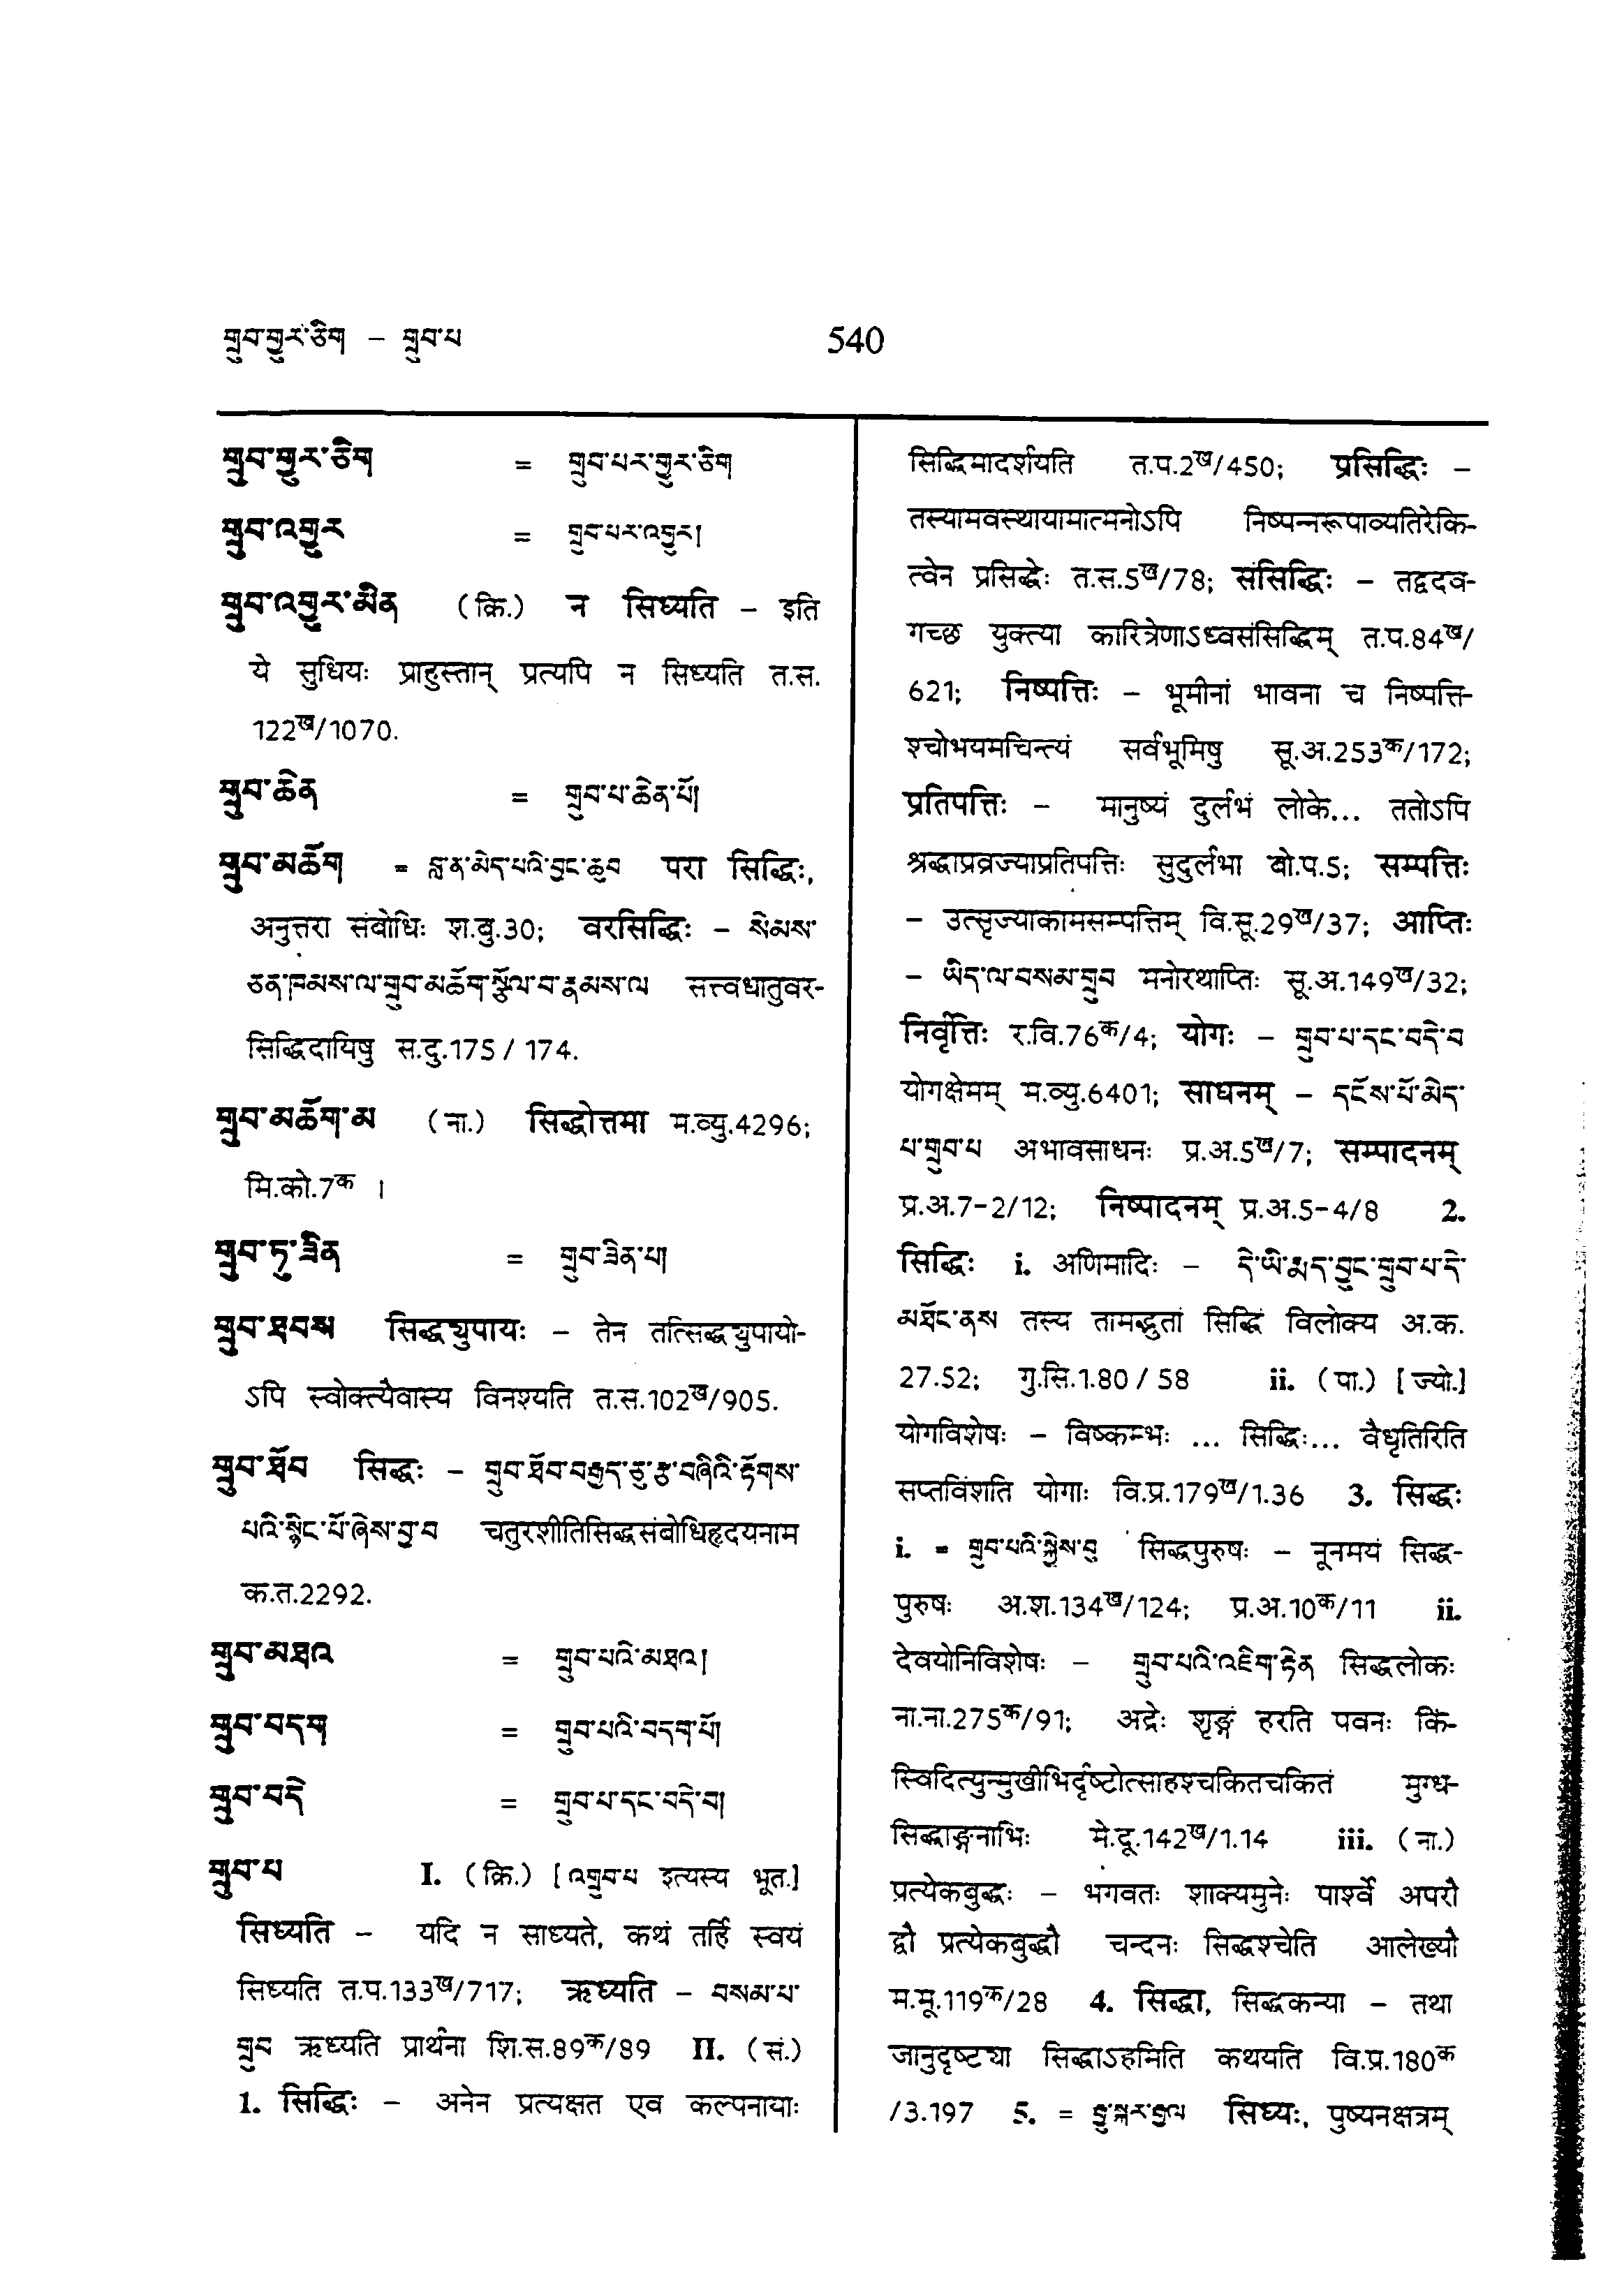 གྲུབ་གྱུར་ཅིག – གྲུབ་པ
540
གྲུབ་གྱུར་ཅིག = གྲུབ་པར་གྱུར་ཅིག
གྲུབ་འགྱུར = གྲུབ་པར་འགྱུར།
གྲུབ་འགྱུར་མིན (क्रि.) न सिध्यति – इति
ये सुधियः प्राहुस्तान् प्रत्यपि न सिध्यति त.स.
122ख/1070.
གྲུབ་ཆེན = གྲུབ་པ་ཆེན་པོ།
གྲུབ་མཆོག = བླ་ན་མེད་པའི་བྱང་ཆུབ परा सिद्धिः,
अनुत्तरा संबोधिः श.बु.30; वरसिद्धिः – སེམས་
ཅན་ཁམས་ལ་གྲུབ་མཆོག་སྩོལ་བ་རྣམས་ལ सत्त्वधातुवर-
सिद्धिदायिषु स.दु.175 / 174.
གྲུབ་མཆོག་མ (ना.) सिद्धोत्तमा म.व्यु.4296;
मि.को.7क ।
གྲུབ་ཏུ་ཟིན = གྲུབ་ཟིན་པ།
གྲུབ་ཐབས सिद्ध्युपायः – तेन तत्सिद्ध्युपायो-
ऽपि स्वोक्त्यैवास्य विनश्यति त.स.102ख/905.
གྲུབ་ཐོབ सिद्धः – གྲུབ་ཐོབ་བརྒྱད་ཅུ་རྩ་བཞིའི་རྟོགས་
པའི་སྙིང་པོ་ཞེས་བྱ་བ चतुरशीतिसिद्धसंबोधिहृदयनाम
क.त.2292.
གྲུབ་མཐའ = གྲུབ་པའི་མཐའ།
གྲུབ་བདག = གྲུབ་པའི་བདག་པོ།
གྲུབ་བདེ = གྲུབ་པ་དང་བདེ་བ།
གྲུབ་པ I. (क्रि.) [འགྲུབ་པ इत्यस्य भूत.]
सिध्यति – यदि न साध्यते, कथं तर्हि स्वयं
सिध्यति त.प.133ख/717; ऋध्यति – བསམ་པ་
གྲུབ ऋध्यति प्रार्थना शि.स.89क/89 II. (सं.)
1. सिद्धिः – अनेन प्रत्यक्षत एव कल्पनायाः
सिद्धिमादर्शयति त.प.2ख/450; प्रसिद्धिः –
तस्यामवस्थायामात्मनोऽपि निष्पन्नरूपाव्यतिरेकि-
त्वेन प्रसिद्धेः त.स.5ख/78; संसिद्धिः – तद्वदव-
गच्छ युक्त्या कारित्रेणाऽध्वसंसिद्धिम् त.प.84ख/
621; निष्पत्तिः – भूमीनां भावना च निष्पत्ति-
श्चोभयमचिन्त्यं सर्वभूमिषु सू.अ.253क/172;
प्रतिपत्तिः – मानुष्यं दुर्लभं लोके... ततोऽपि
श्रद्धाप्रव्रज्याप्रतिपत्तिः सुदुर्लभा बो.प.5; सम्पत्तिः
– उत्सृज्याकामसम्पत्तिम् वि.सू.29ख/37; आप्तिः
– ཡིད་ལ་བསམ་གྲུབ मनोरथाप्तिः सू.अ.149ख/32;
निर्वृत्तिः र.वि.76क/4; योगः – གྲུབ་པ་དང་བདེ་བ
योगक्षेमम् म.व्यु.6401; साधनम् – དངོས་པོ་མེད་
པ་གྲུབ་པ अभावसाधनः प्र.अ.5ख/7; सम्पादनम्
प्र.अ.7-2/12; निष्पादनम् प्र.अ.5-4/8 2.
सिद्धिः i. अणिमादिः – དེ་ཡི་རྨད་བྱུང་གྲུབ་པ་དེ་
མཐོང་ནས तस्य तामद्भुतां सिद्धिं विलोक्य अ.क.
27.52; गु.सि.1.80 / 58 ii. (पा.) [ज्यो.]
योगविशेषः – विष्कम्भः ... सिद्धिः... वैधृतिरिति
सप्तविंशति योगाः वि.प्र.179ख/1.36 3. सिद्धः
i. = གྲུབ་པའི་སྐྱེས་བུ सिद्धपुरुषः – नूनमयं सिद्ध-
पुरुषः अ.श.134ख/124; प्र.अ.10क/11 ii.
देवयोनिविशेषः – གྲུབ་པའི་འཇིག་རྟེན सिद्धलोकः
ना.ना.275क/91; अद्रेः शृङ्गं हरति पवनः किं-
स्विदित्युन्मुखीभिर्दृष्टोत्साहश्चकितचकितं मुग्ध-
सिद्धाङ्गनाभिः मे.दू.142ख/1.14 iii. (ना.)
प्रत्येकबुद्धः – भगवतः शाक्यमुनेः पार्श्वे अपरौ
द्वौ प्रत्येकबुद्धौ चन्दनः सिद्धश्चेति आलेख्यौ
म.मू.119क/28 4. सिद्धा, सिद्धकन्या – तथा
जानुदृष्ट्या सिद्धाऽहमिति कथयति वि.प्र.180क
/3.197 5. = རྒྱུ་སྐར་རྒྱལ सिध्यः, पुष्यनक्षत्रम्